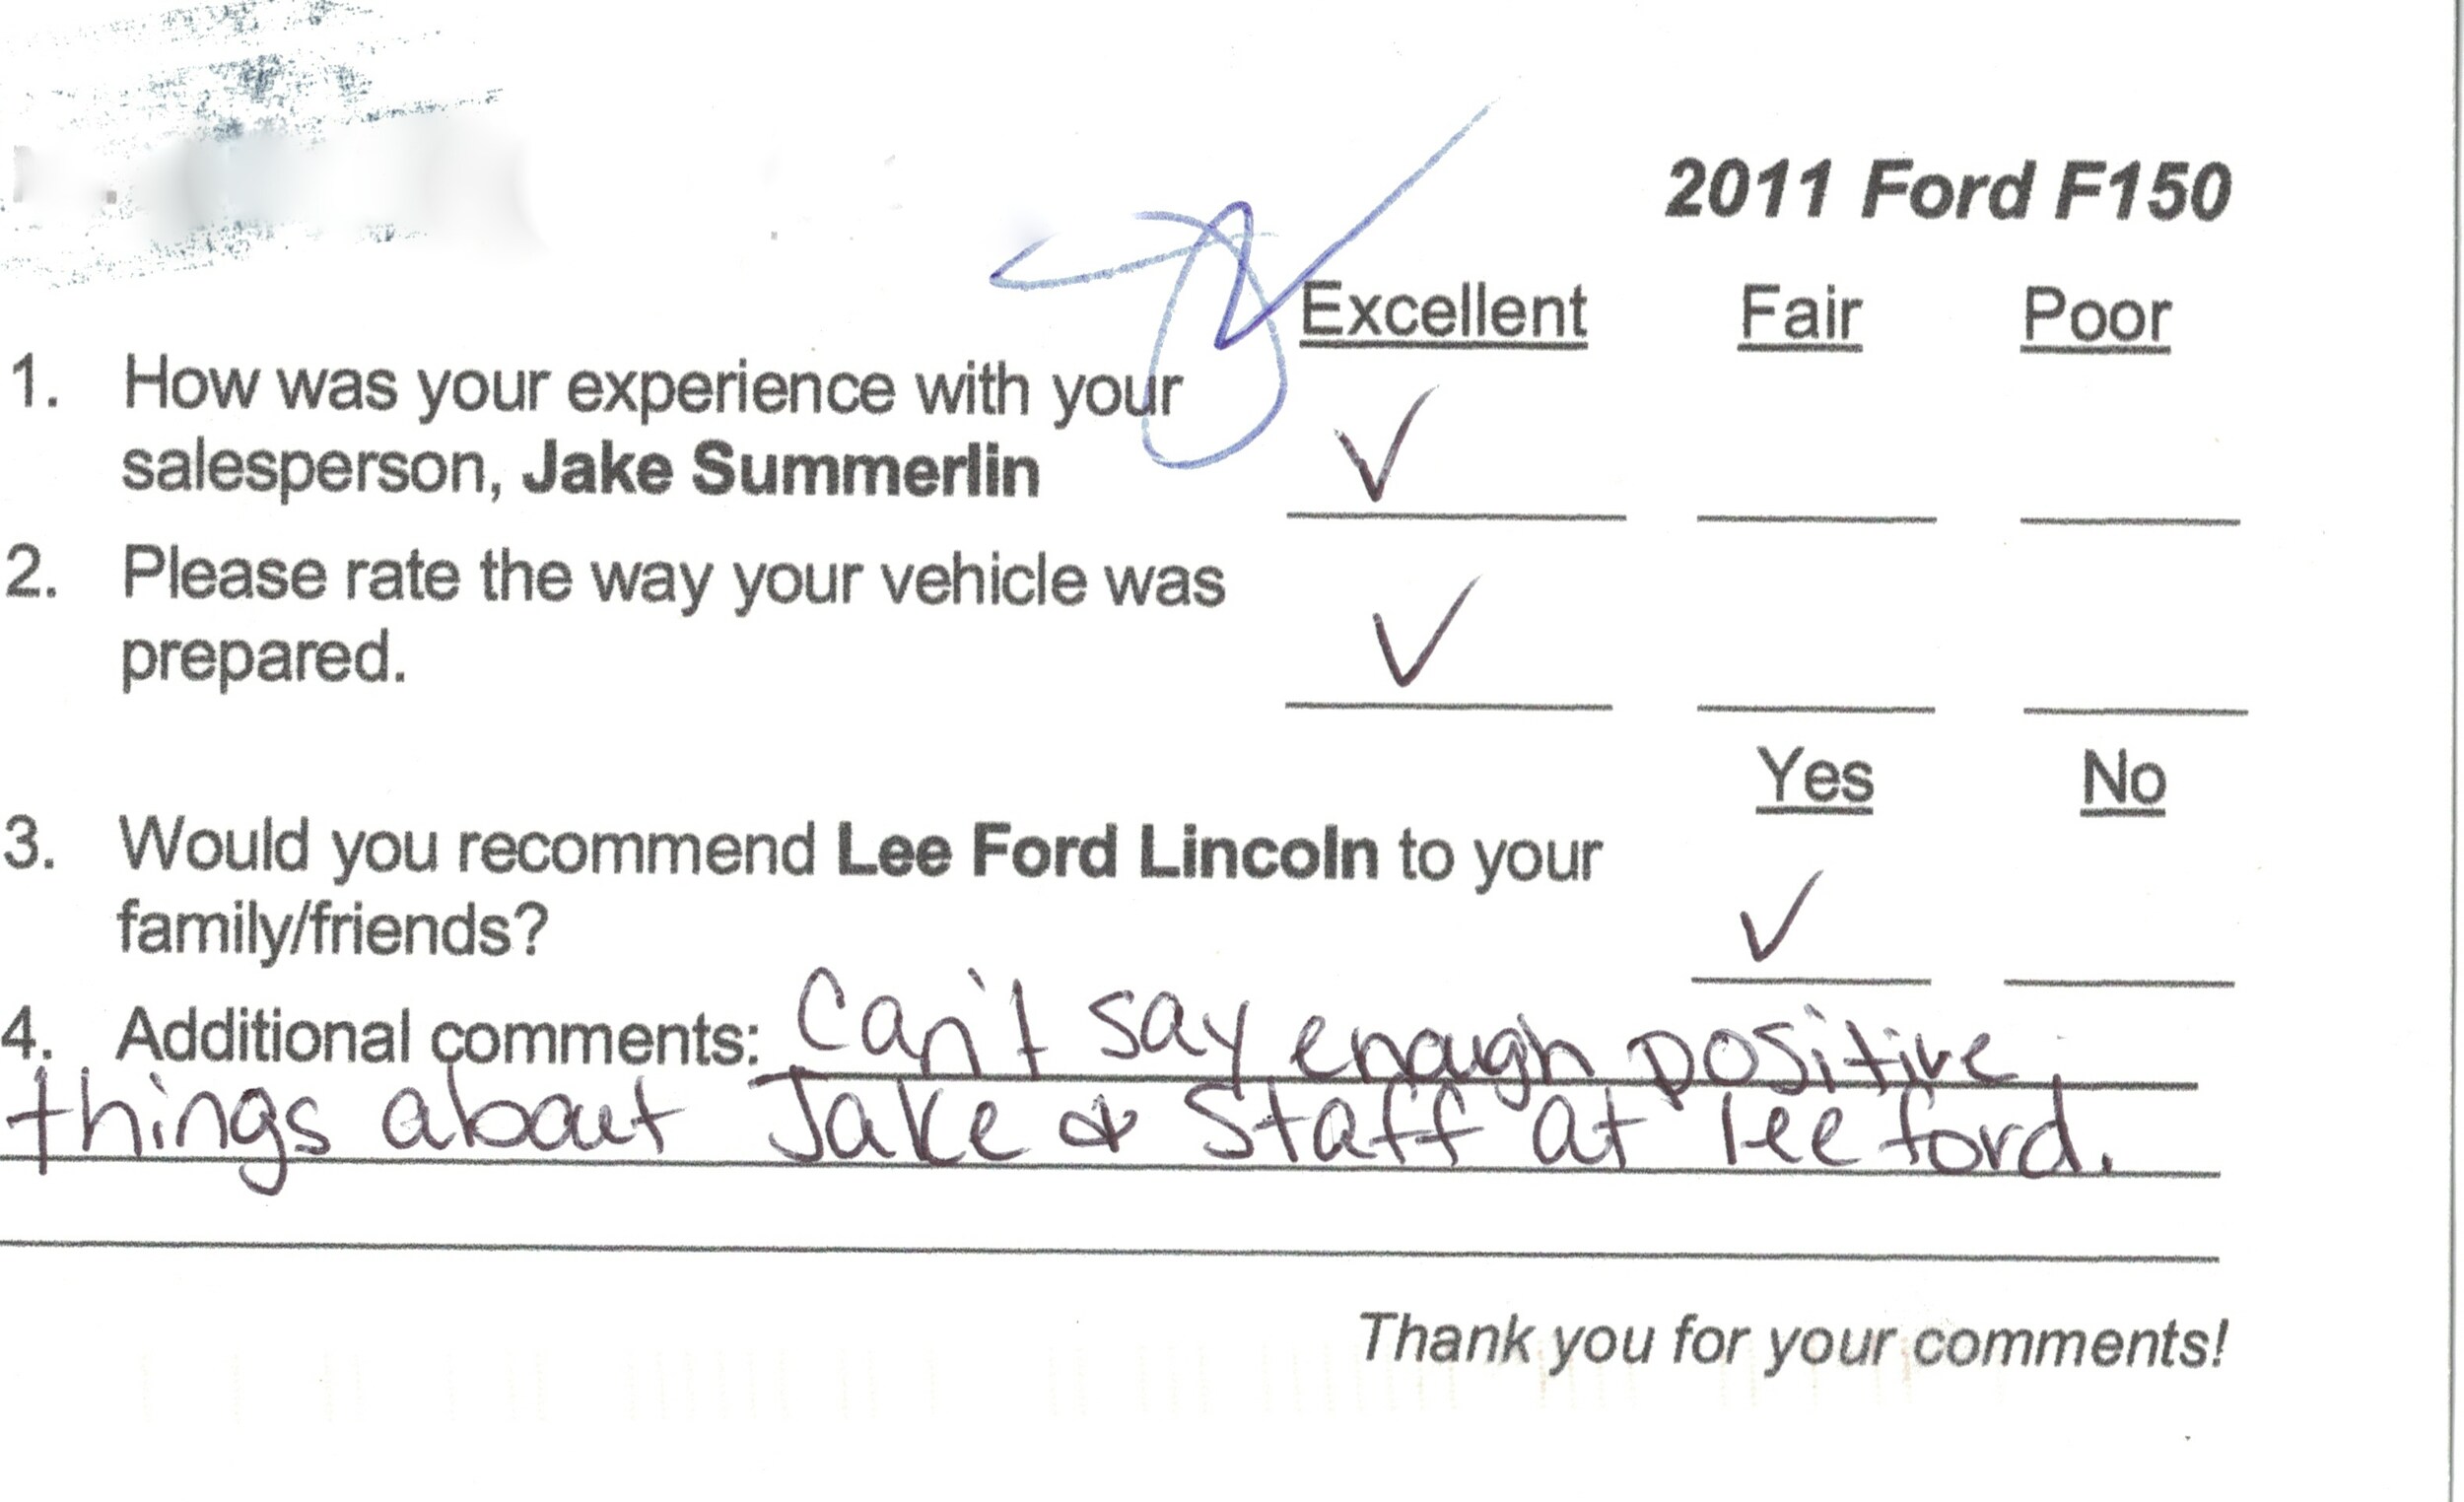 2011 Ford F150
Excellent Fair Poor
1. How was your experience with your
salesperson, Jake Summerlin ✓
2. Please rate the way your vehicle was
prepared. ✓
Yes No
3. Would you recommend Lee Ford Lincoln to your
family/friends? ✓
4. Additional comments: Can't say enough positive
things about Jake & Staff at lee ford.
Thank you for your comments!